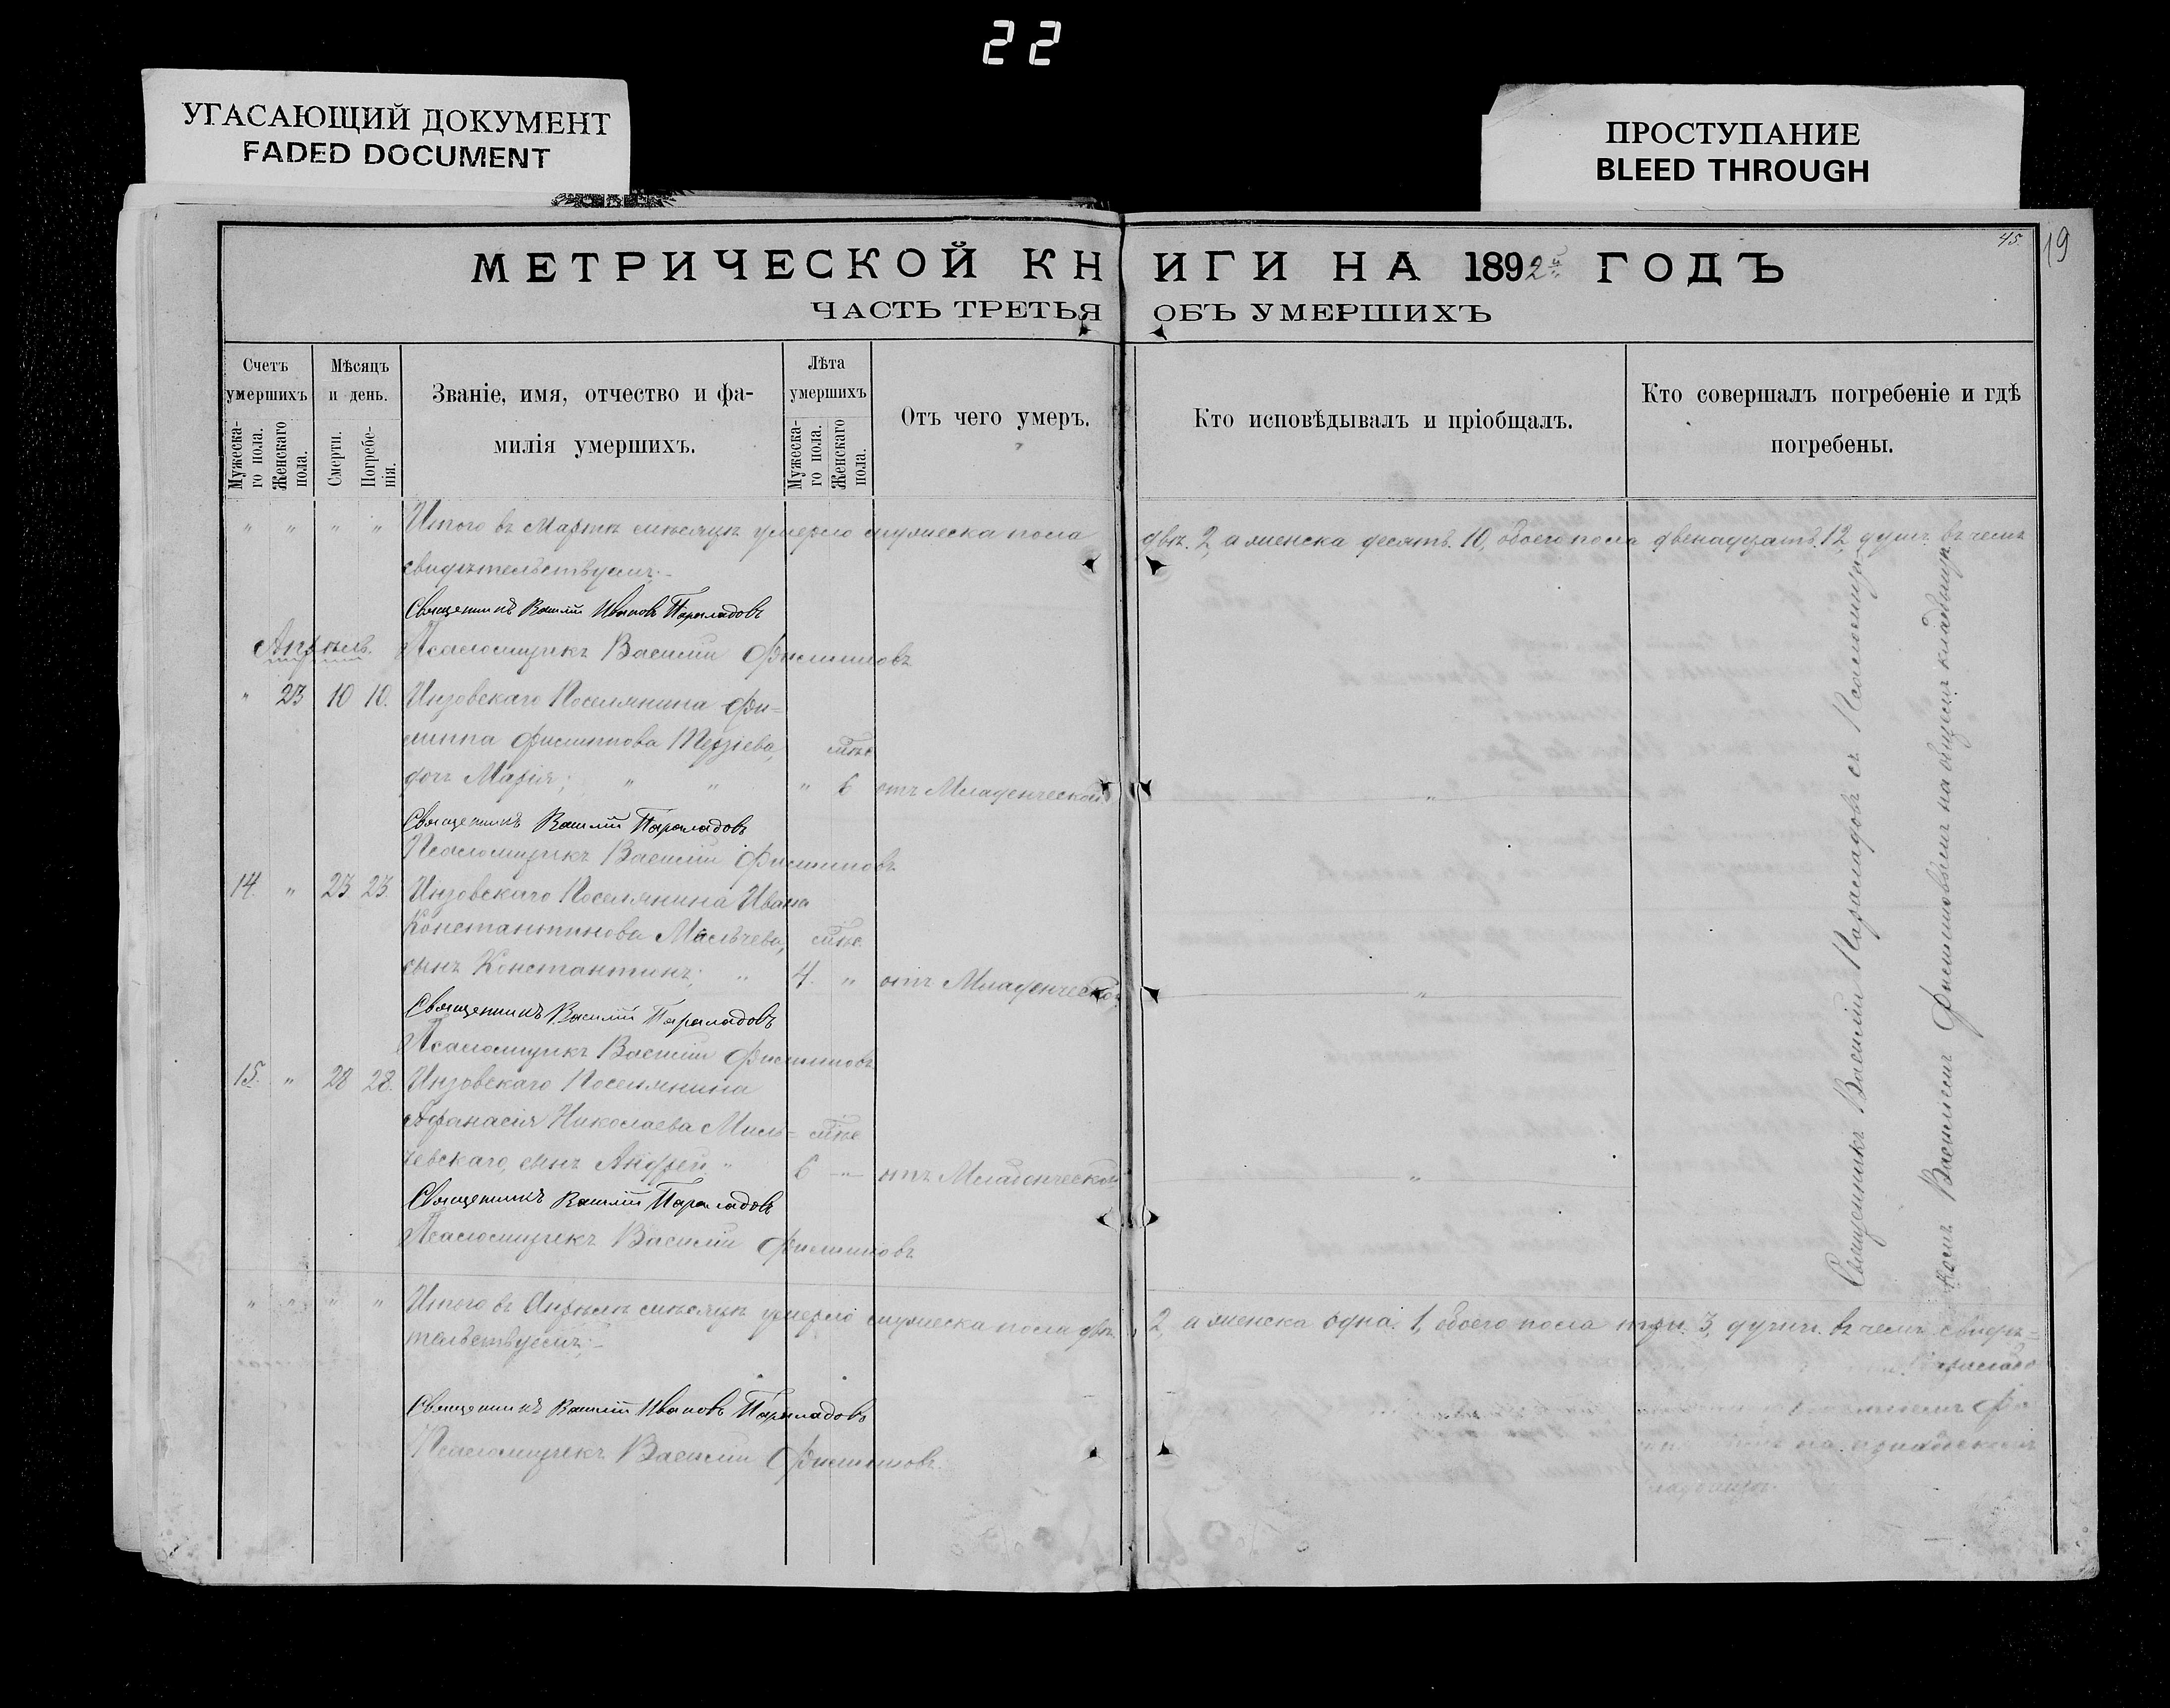 22
УГАСАЮЩИЙ ДОКУМЕНТ
FADED DOCUMENT
ПРОСТУПАНИЕ
BLEED THROUGH
45.
19
МЕТРИЧЕСКОЙ КНИГИ НА 1892й ГОДЪ
ЧАСТЬ ТРЕТЬЯ ОБЪ УМЕРШИХЪ
Счетъ умершихъ
Мужеска-го пола.
Женскаго пола.
Мѣсяцъ и день.
Смерти.
Погребе-нія.
Званіе, имя, отчество и фа-
милія умершихъ.
Лѣта умершихъ
Мужеска-го пола.
Женскаго пола.
Отъ чего умеръ.
Кто исповѣдывалъ и пріобщалъ.
Кто совершалъ погребеніе и гдѣ
погребены.
" " " " Итого въ Мартѣ мѣсяцѣ умерло мужеска пола двѣ. 2, а женска десять. 10, обоего пола двенадцать. 12, душъ. въ чемъ
свидѣтельствуемъ:-
Священникъ Василій Ивановъ Парападовъ
Апрѣль. Псаломщикъ Василій Филипповъ
" 23 10 10. Инзовскаго Поселянина Фи=
липпа Филиппова Терзіева, мѣс.
дочь Марія; " " " 6 отъ Младенческой "
Священникъ Василій Парападовъ
Псаломщикъ Василій Филипповъ
14. " 23 23. Инзовскаго Поселянина Ивана
Константинова Мальчева, мѣс.
сынъ Константинъ; " 4. " отъ Младенческой "
Священникъ Василій Парападовъ
Псаломщикъ Василій Филипповъ
15. " 28 28. Инзовскаго Поселянина
Афанасія Николаева Миль= мѣс
чевскаго, сынъ Андрей. " 6 " отъ Младенческой "
Священникъ Василій Парападовъ
Псаломщикъ Василій Филипповъ
Священникъ Василій Парападовъ съ Псаломщи-
комъ Василіемъ Филипповымъ на общемъ кладбищѣ.
" " " " Итого въ Апрѣлѣ мѣсяцѣ умерло мужеска пола двѣ. 2, а женска одна. 1, обоего пола три. 3, душъ. въ чемъ свидѣ=
тельствуемъ:-
Священникъ Василій Ивановъ Парападовъ
Псаломщикъ Василій Филипповъ.